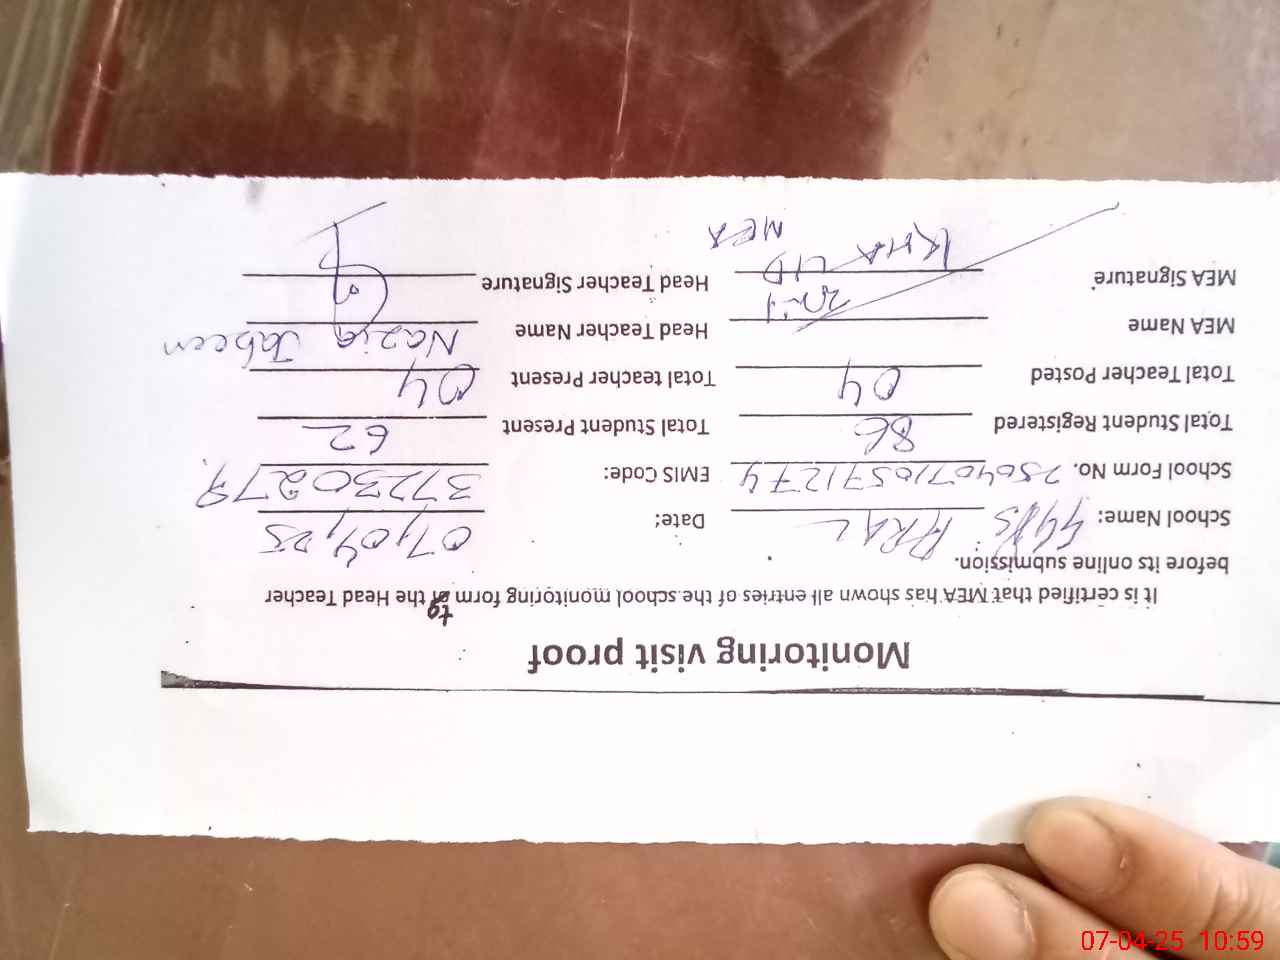 Monitoring visit proof
It is certified that MEA has shown all entries of the school monitoring form to the Head Teacher
before its online submission.
School Name: RRAL Date: 07,04,25
School Form No. 2504071057 1274 EMIS Code: 37230279
Total Student Registered 86 Total Student Present 62
Total Teacher Posted 04 Total teacher Present 04
MEA Name Head Teacher Name Nazia Jabeen
MEA Signature Head Teacher Signature
MEA
07-04-25 10:59